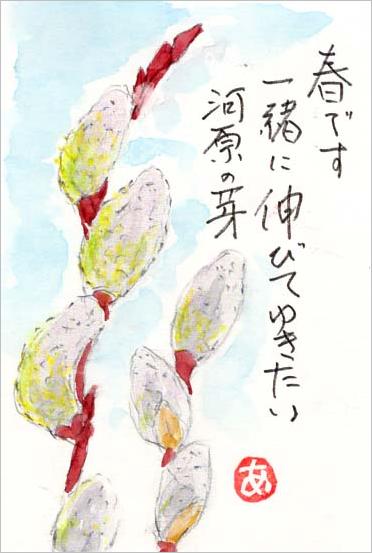 春です
一緒に伸びてゆきたい
河原の芽
あ